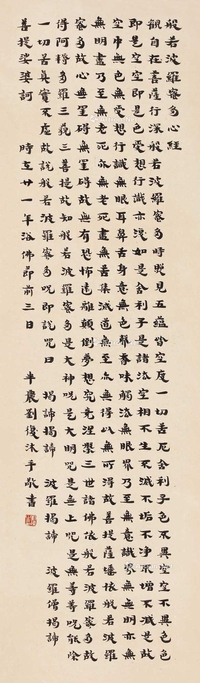 般若波羅蜜多心經
觀自在菩薩行深般若波羅蜜多時照見五蘊皆空度一切苦厄舍利子色不異空空不異色色
即是空空即是色受想行識亦復如是舍利子是諸法空相不生不滅不垢不淨不增不減是故
空中無色無受想行識無眼耳鼻舌身意無色聲香味觸法無眼界乃至無意識界無無明亦無
無明盡乃至無老死亦無老死盡無苦集滅道無智亦無得以無所得故菩提薩埵依般若波羅
蜜多故心無罣礙無罣礙故無有恐怖遠離顛倒夢想究竟涅槃三世諸佛依般若波羅蜜多故
得阿耨多羅三藐三菩提故知般若波羅蜜多是大神咒是大明咒是無上咒是無等等咒能除
一切苦真實不虛故說般若波羅蜜多咒即說咒曰 揭諦揭諦 波羅揭諦 波羅僧揭諦
菩提娑婆訶 時在廿一年浴佛節前三日 半農劉復沐手敬書